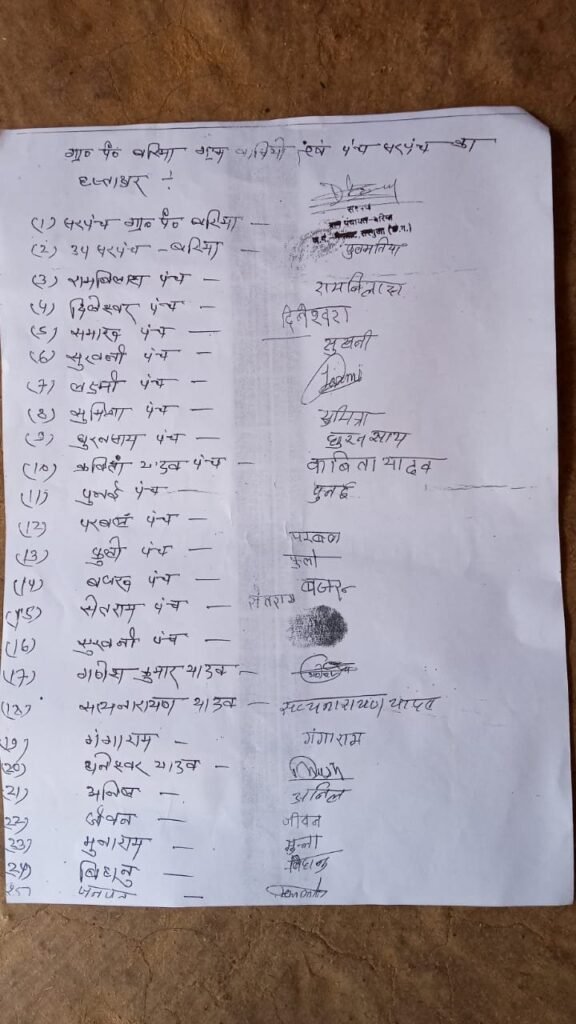 ग्रा० पं० बरिमा ग्राम वासियों एवं पंच सरपंच का
हस्ताक्षर :-
(1) सरपंच ग्रा० पं० बरिमा -
सरपंच
ग्राम पंचायत-बरिमा
(2) उप सरपंच - बरिमा - फुलमतिया
(3) रामबिलास पंच - रामबिलास
(4) दिनेश्वर पंच - दिनेश्वरा
(5) पंच -
(6) सुखनी पंच - सुखनी
(7) लक्ष्मी पंच - Laxmi
(8) सुमित्रा पंच - सुमित्रा
(9) धुरवसाय पंच - धुरवसाय
(10) कबिता यादव पंच - कबिता यादव
(11) पुनई पंच - पुनई
(12) परबल पंच - परबल
(13) फुलो पंच - फुलो
(14) बजरन पंच - बजरन
(15) सेतराम पंच - सेतराम
(16) सुखनी पंच -
(17) गणेश कुमार यादव -
(18) सत्यनारायण यादव - सत्यनारायण यादव
(19) गंगाराम - गंगाराम
(20) धनेश्वर यादव -
(21) अनिल - अनिल
(22) जीवन - जीवन
(23) मुनाराम - मुन्ना
(24) बिहानु -
(25) -